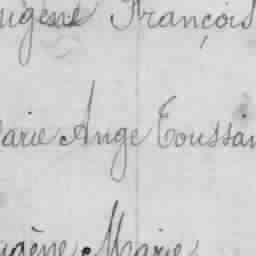 ugene François
arie Ange Toussain
ugène Marie